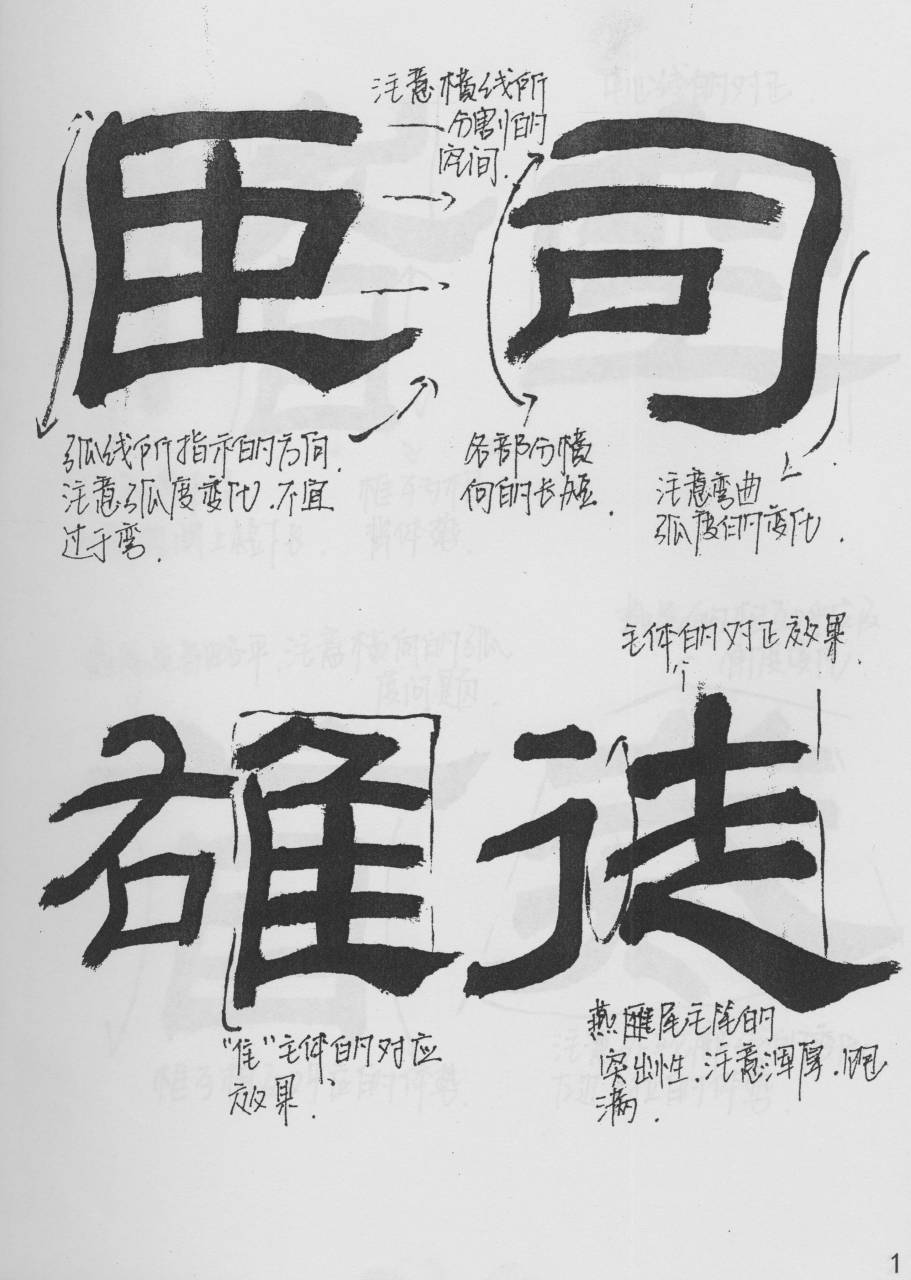 注意横线所
分割的
空间.
臣司
弧线所指示的方向.
注意弧度变化.不宜
过于弯.
各部分横
向的长短.
注意弯曲
弧度的变化.
主体的对正效果.
雄徒
"隹"主体的对应
效果.
燕雁尾主笔的
突出性.注意浑厚.饱
满.
1